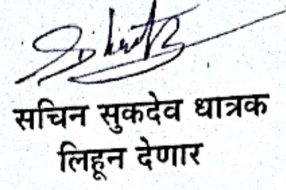 सचिन सुकदेव धात्रक
लिहून देणार